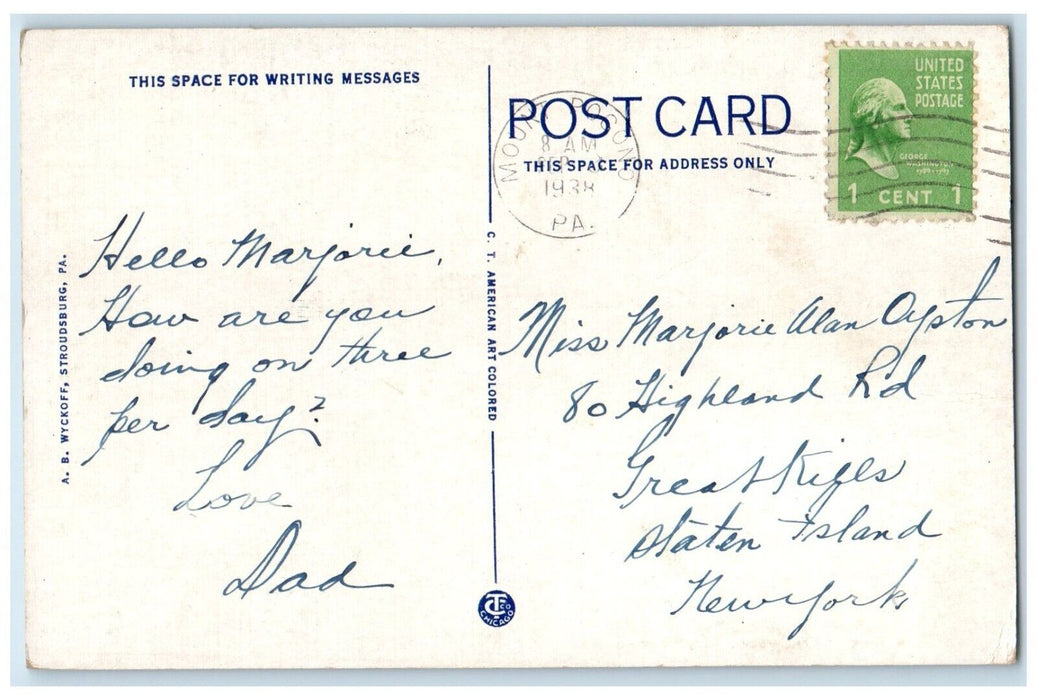 THIS SPACE FOR WRITING MESSAGES
Hello Marjorie,
How are you
doing on three
per day?
Love
Dad
A. B. WYCKOFF, STROUDSBURG, PA.
C. T. AMERICAN ART COLORED
CT CO
CHICAGO
POST CARD
THIS SPACE FOR ADDRESS ONLY
MOUNT POCONO
8 AM
SEP
1938
PA.
UNITED
STATES
POSTAGE
GEORGE
WASHINGTON
1 CENT 1
Miss Marjorie Alan
80 Highland Rd
Great Kills
Staten Island
New York